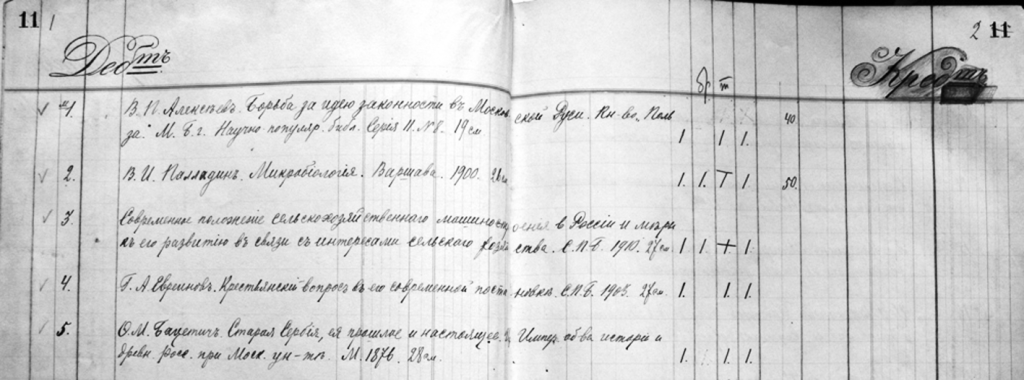 11 1
2 11
Дебтъ
Кредтъ
бр. т
✓ № 1. В. П. Алексеевъ. Борьба за идею законности въ Москов ской Руси. Кн-во. Поль 40
за. М. б. г. Научно популяр. библ. Серія II. № 8. 19 см 1 1 1.
✓ 2. В. И. Палладинъ. Микробіологія. Варшава. 1900. 1. 1. Т 1. 50.
✓ 3. Современное положеніе сельскохозяйственнаго машиностро оенія в Россіи и мѣры
къ его развитію въ связи съ интересами сельскаго хозяй ства. С.П.Б. 1910. 27 см 1 1. + 1.
✓ 4. Г. А. Евреиновъ. Крестьянскій вопросъ въ его современной поста новкѣ. С.П.Б. 1903. 1. 1. 1.
5. О. М. Бацетич. Старая Сербія, ея прошлое и настоящее. Импер. об-ва исторіи и
древн. Росс. при Моск. ун-тѣ. М. 1876. 1. 1. 1.